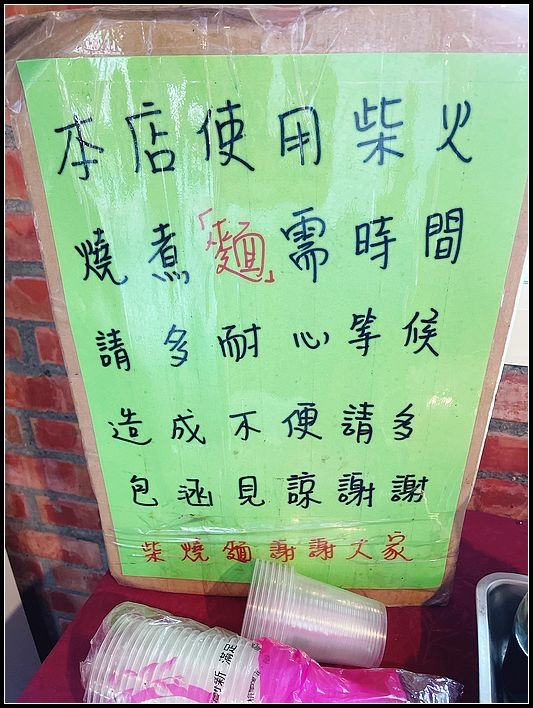 本店使用柴火
燒煮「麵」需時間
請多耐心等候
造成不便請多
包涵見諒謝謝
柴燒麵謝謝大家
滿足